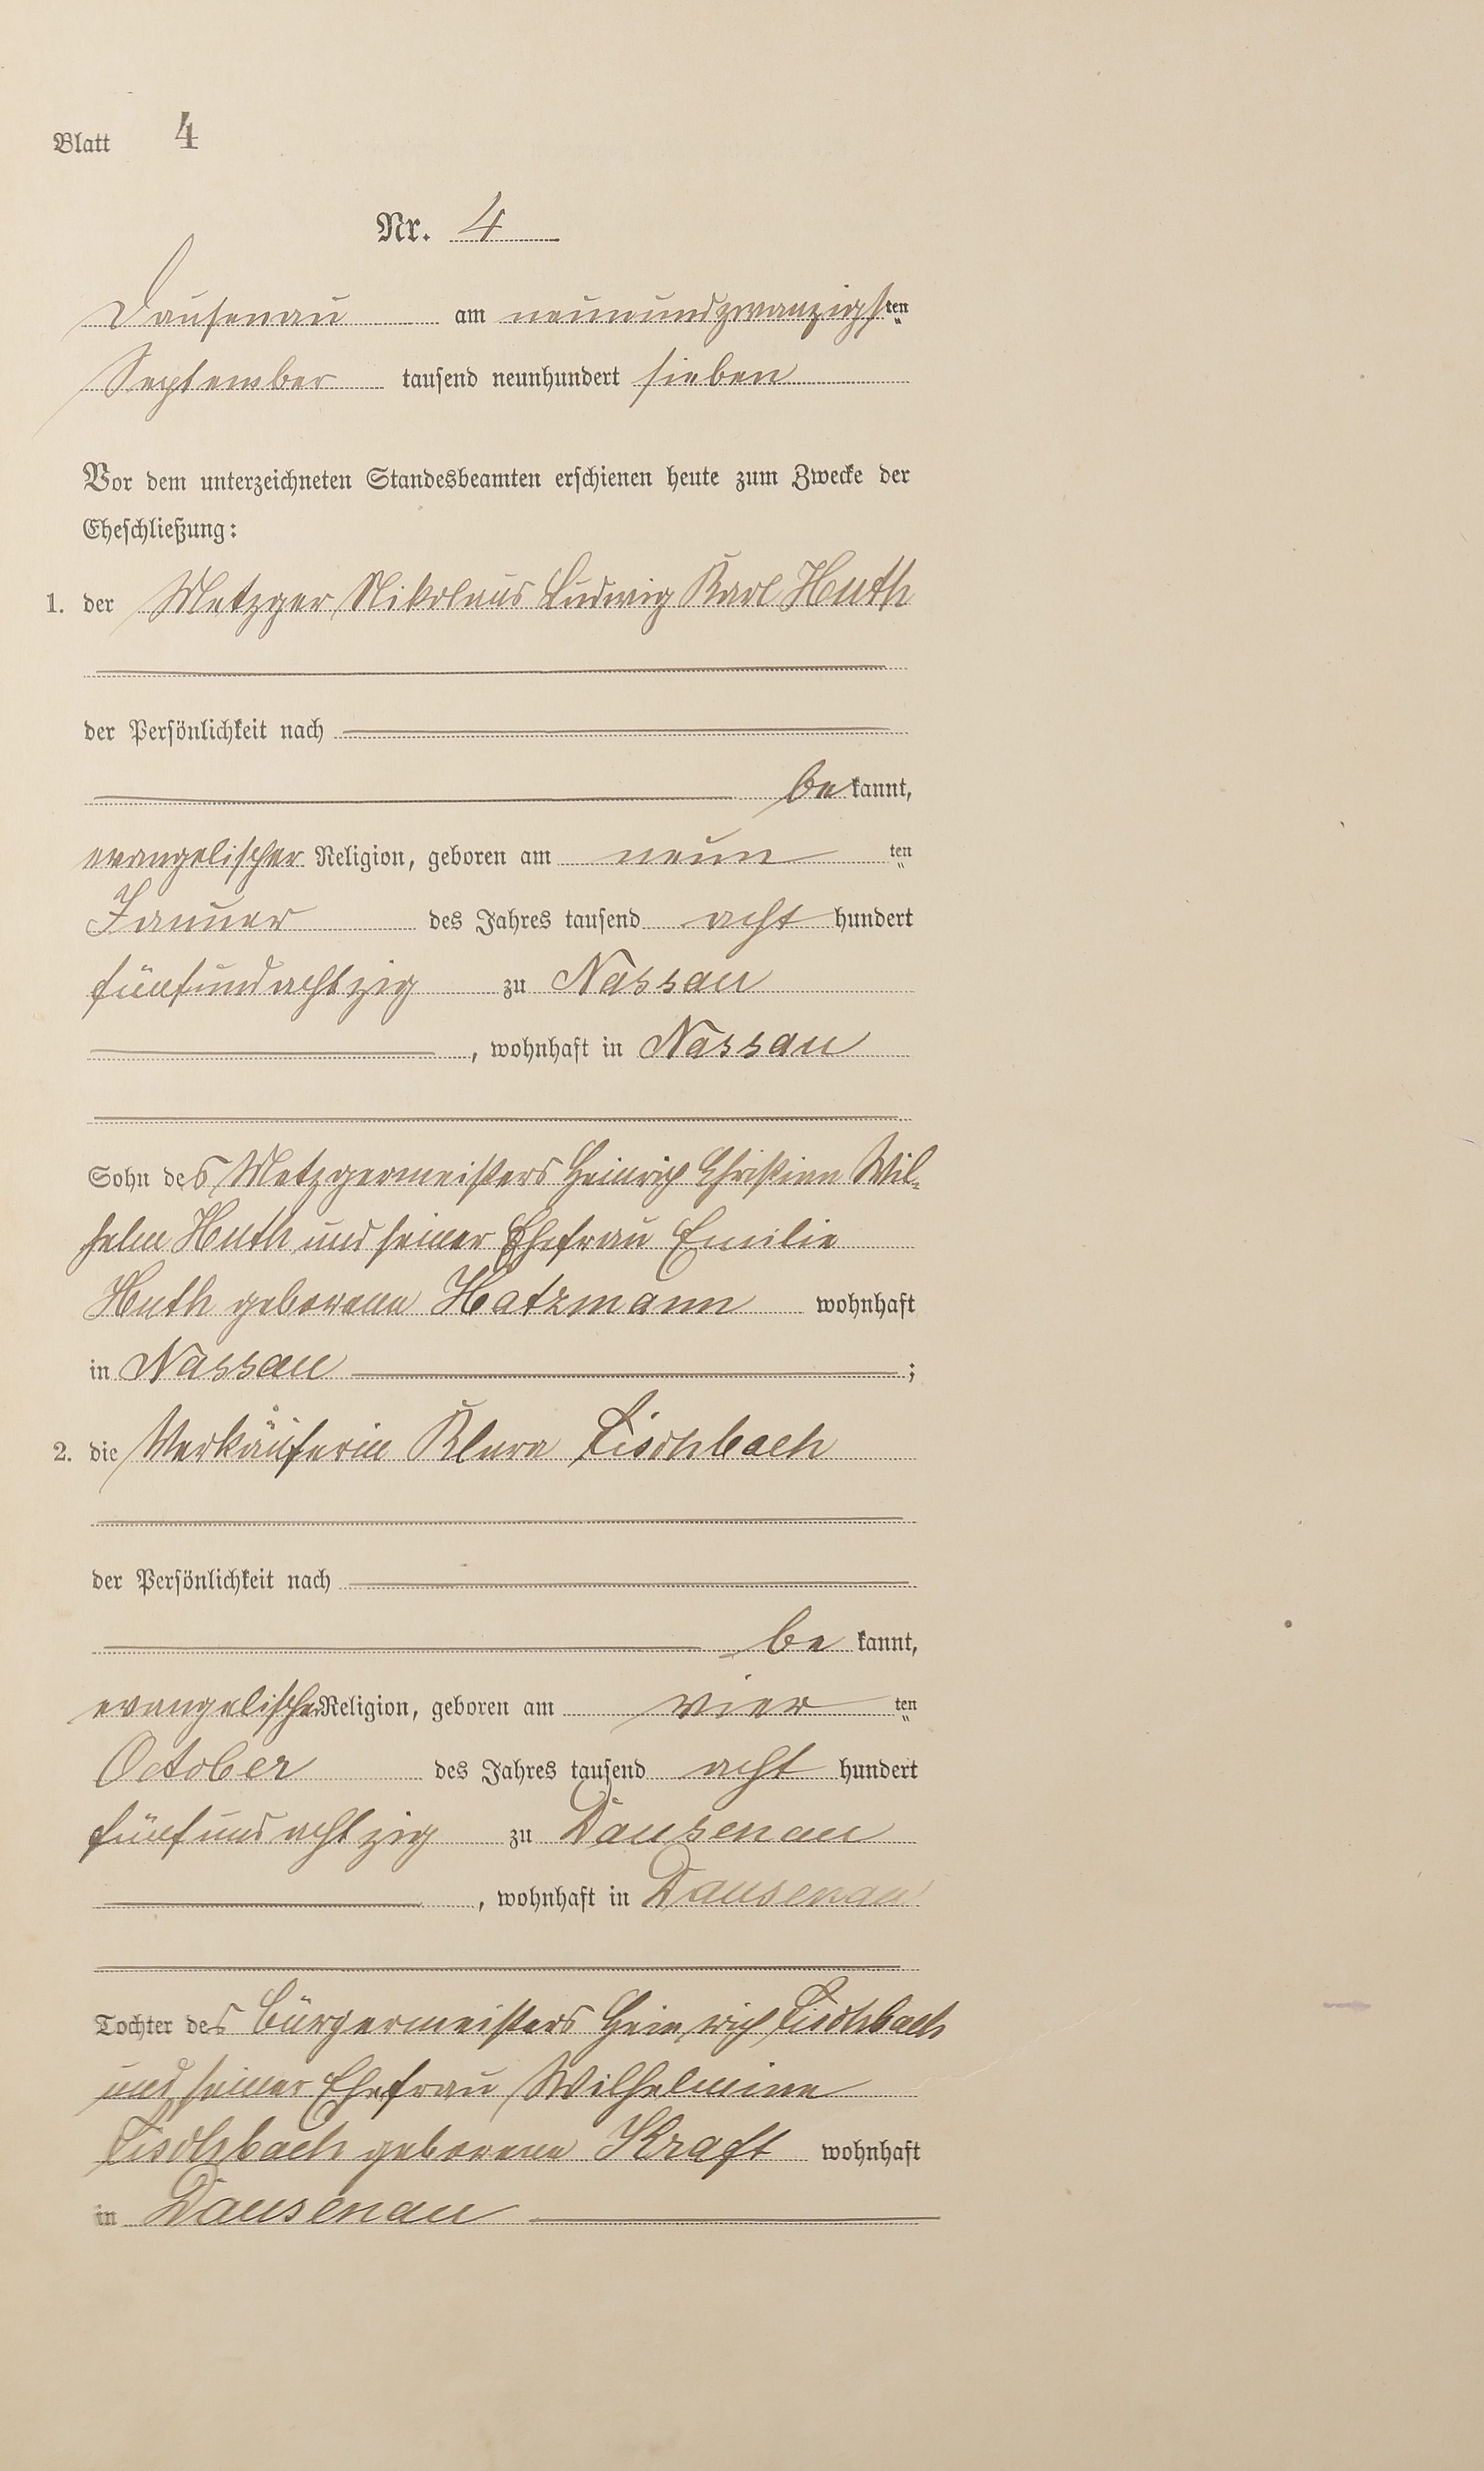 Blatt 4
Nr. 4
Dausenau am neunundzwanzigsten
September tausend neunhundert sieben
Vor dem unterzeichneten Standesbeamten erschienen heute zum Zwecke der
Eheschließung:
1. der Metzger Nikolaus Ludwig Karl Huth
der Persönlichkeit nach
be kannt,
evangelischer Religion, geboren am neun ten
Januar des Jahres tausend acht hundert
fünfundachtzig zu Nassau
, wohnhaft in Nassau
Sohn des Metzgermeisters Heinrich Christian Wil-
helm Huth und seiner Ehefrau Emilie
Huth geborene Hatzmann wohnhaft
in Nassau ;
2. die Verkäuferin Klara Fischbach
der Persönlichkeit nach
be kannt,
evangelischer Religion, geboren am vier ten
October des Jahres tausend acht hundert
fünfundachtzig zu Dausenau
, wohnhaft in Dausenau
Tochter des Bürgermeisters Heinrich Fischbach
und seiner Ehefrau Wilhelmine
Fischbach geborene Kraft wohnhaft
in Dausenau